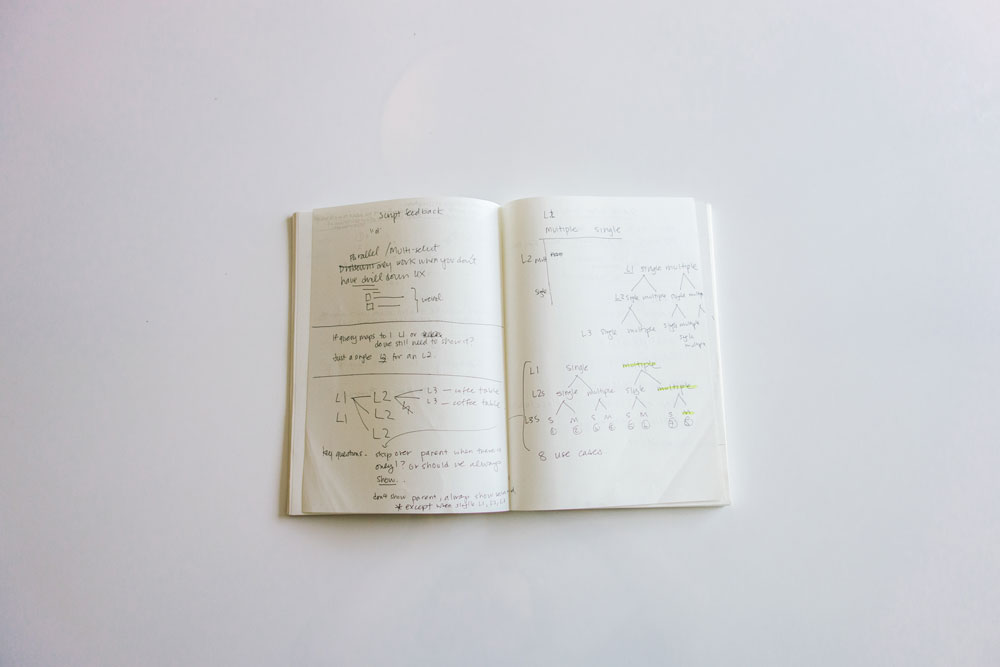 script feedback
"d"
parallel / Multi-select
only work when you don't
have drill down UX.
If query maps to 1 L1 or
do we still need to show it?
Just a single L2 for an L2.
L1 L2 L3 — coffee table
L3 — coffee table
L1 L2
L2
key questions - skip over parent when there is
only 1? or should we always
show.
don't show parent, always show
* except when single
L1
multiple single
L2 mult
single
L1 single multiple
L2 single multiple single multiple
L3 single multiple single multiple
single
multiple
L1 single multiple
L2s single multiple single multiple
L3s S M S M S M S M
8 use cases